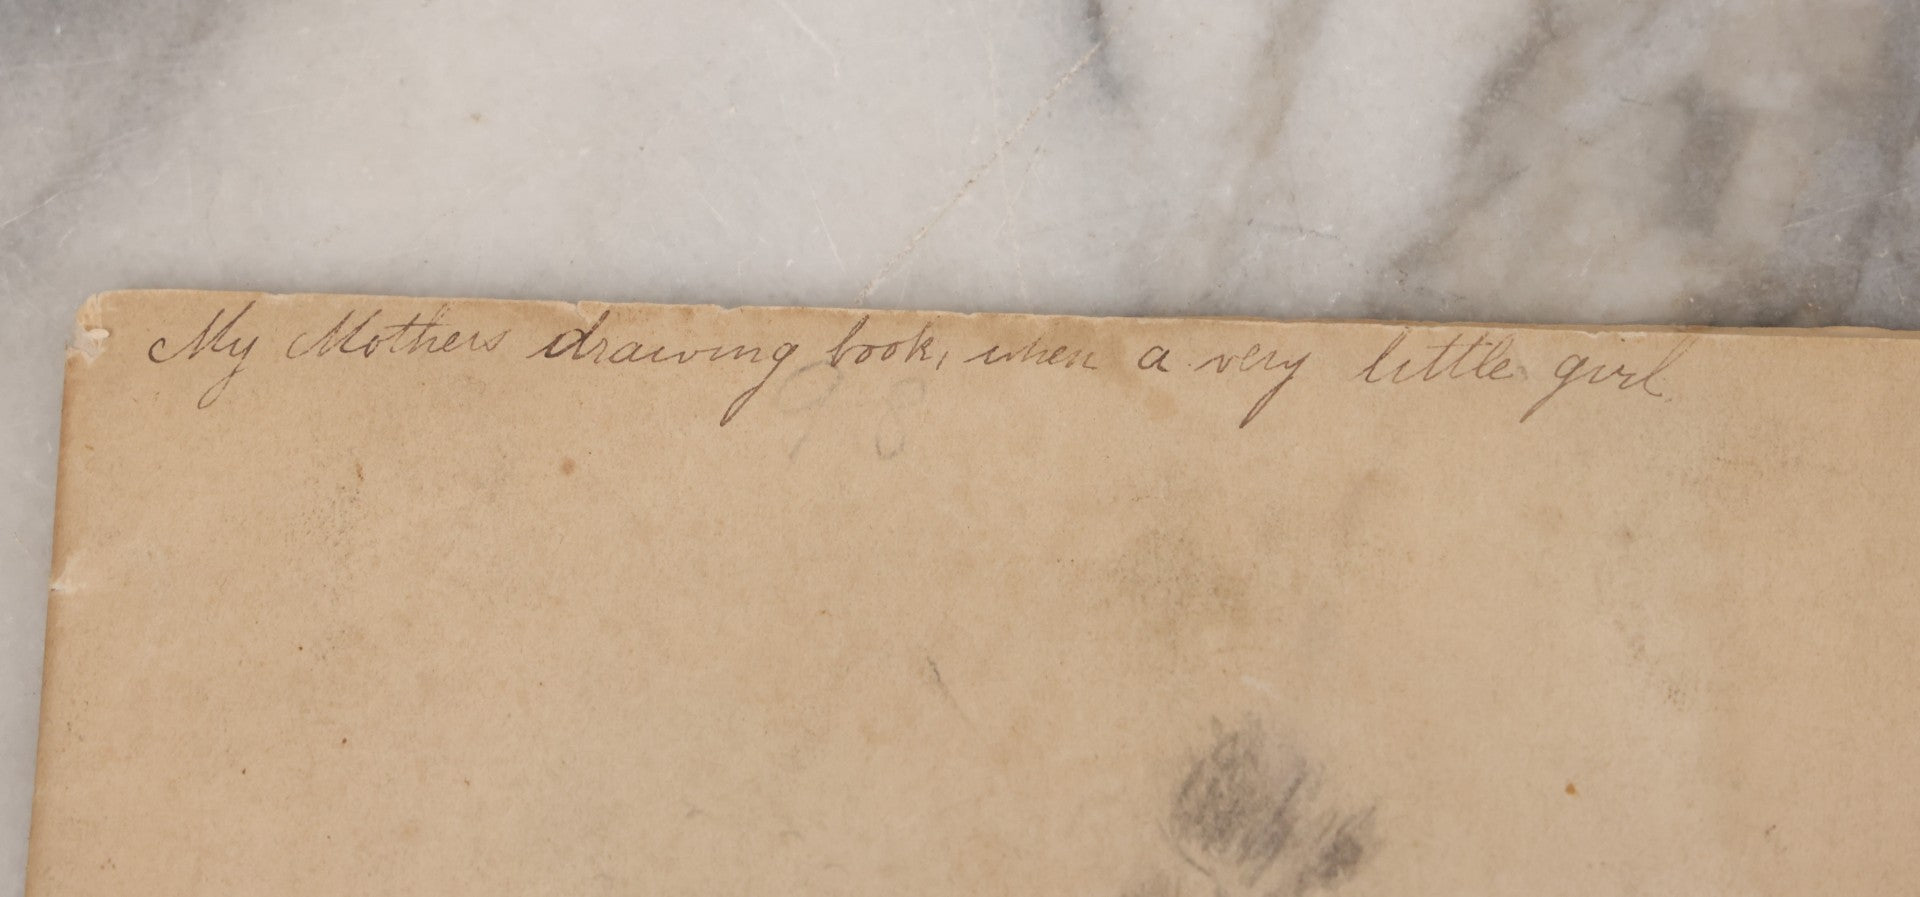 My Mothers drawing book, when a very little girl
98